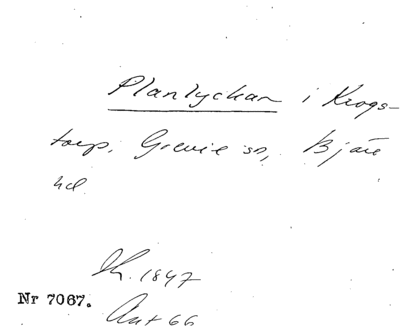 Planlyckan i Krogs-
torp, Grevie sn, Bjäre
hd
Sk. 1847
Nr 7067.
Ant 66